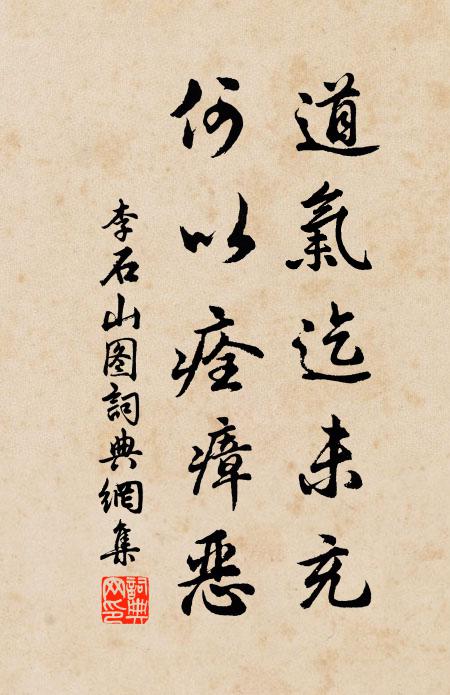 道氣迄未充
何以痊瘴惡
李石山图詞典網集
詞典网印